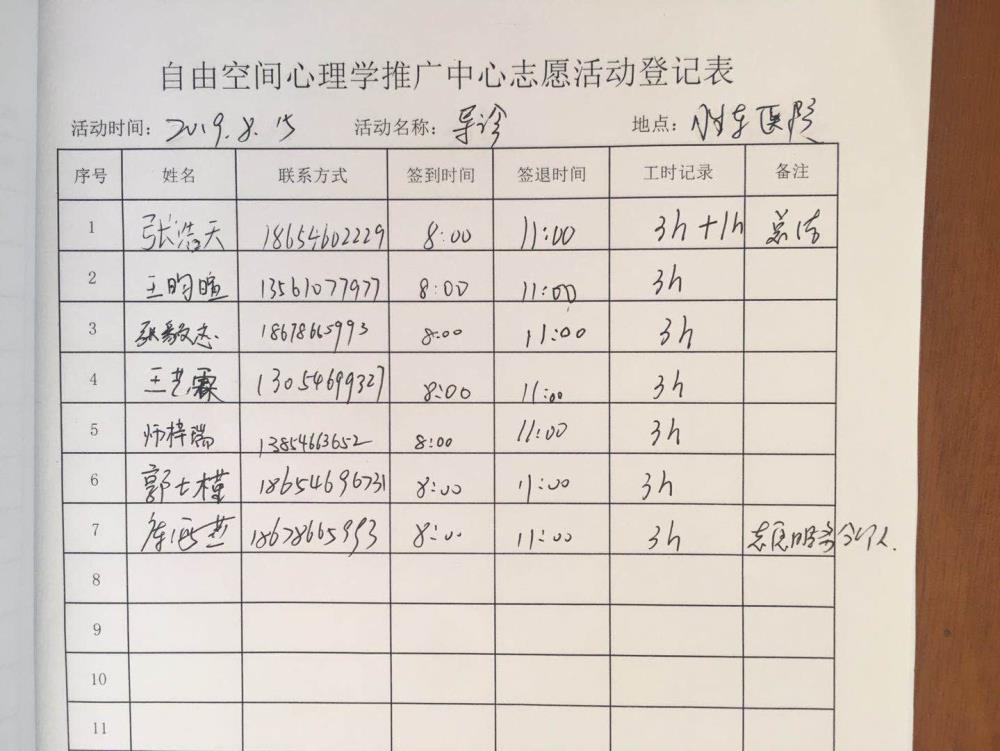 自由空间心理学推广中心志愿活动登记表
活动时间: 2019.8.15 活动名称: 导诊 地点: 胜东医院
序号 姓名 联系方式 签到时间 签退时间 工时记录 备注
1 张浩天 18654602229 8:00 11:00 3h+1h 总结
2 王昀暄 13561077977 8:00 11:00 3h
3 张毅志 18678665993 8:00 11:00 3h
4 王艺霖 13054699327 8:00 11:00 3h
5 师梓瑞 13854663652 8:00 11:00 3h
6 郭士槿 18654696731 8:00 11:00 3h
7 18678665993 8:00 11:00 3h 志愿服务
8
9
10
11